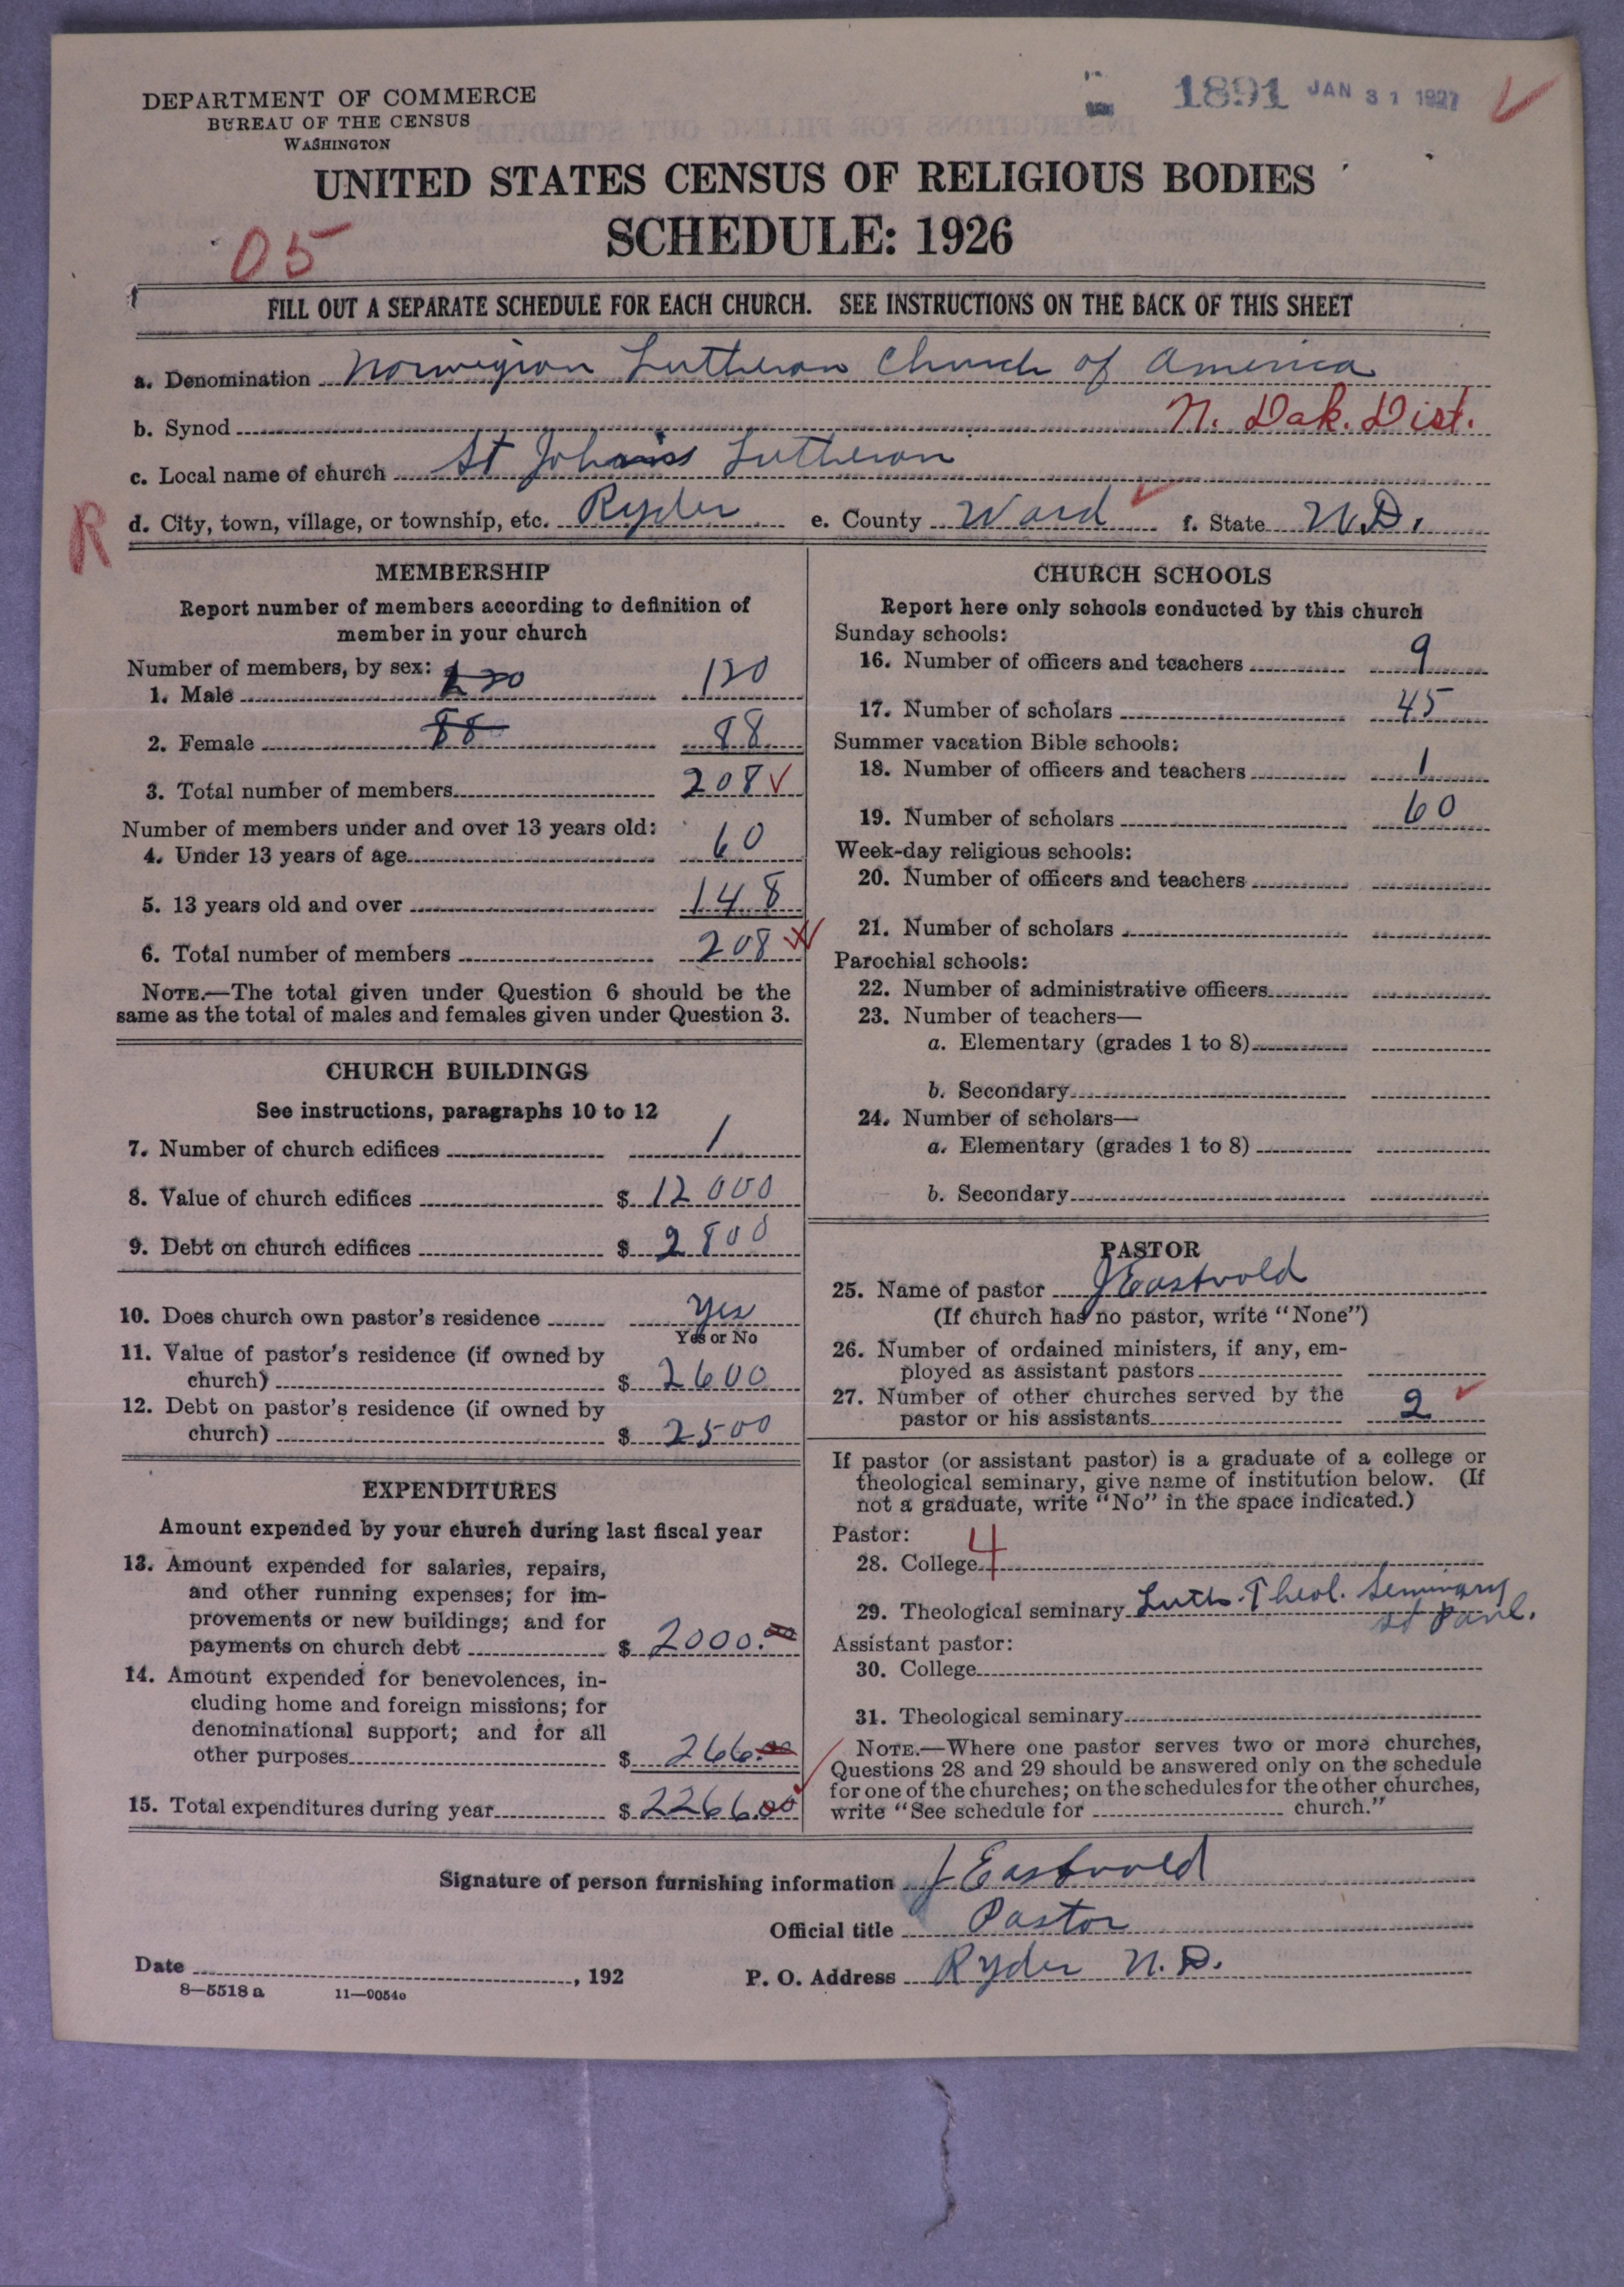 DEPARTMENT OF COMMERCE
BUREAU OF THE CENSUS
WASHINGTON
1891 JAN 31 1927
UNITED STATES CENSUS OF RELIGIOUS BODIES
SCHEDULE: 1926
05
FILL OUT A SEPARATE SCHEDULE FOR EACH CHURCH. SEE INSTRUCTIONS ON THE BACK OF THIS SHEET
a. Denomination Norwegian Lutheran Church of America
b. Synod N. Dak. Dist.
c. Local name of church St Johans Lutheran
R
d. City, town, village, or township, etc. Ryder e. County Ward f. State N.D.
MEMBERSHIP
Report number of members according to definition of
member in your church
Number of members, by sex:
1. Male 120 120
2. Female 88 88
3. Total number of members 208
Number of members under and over 13 years old:
4. Under 13 years of age 60
5. 13 years old and over 148
6. Total number of members 208
NOTE.—The total given under Question 6 should be the
same as the total of males and females given under Question 3.
CHURCH BUILDINGS
See instructions, paragraphs 10 to 12
7. Number of church edifices 1
8. Value of church edifices $ 12000
9. Debt on church edifices $ 2800
10. Does church own pastor's residence yes
Yes or No
11. Value of pastor's residence (if owned by
church) $ 2600
12. Debt on pastor's residence (if owned by
church) $ 2500
EXPENDITURES
Amount expended by your church during last fiscal year
13. Amount expended for salaries, repairs,
and other running expenses; for im-
provements or new buildings; and for
payments on church debt $ 2000.00
14. Amount expended for benevolences, in-
cluding home and foreign missions; for
denominational support; and for all
other purposes $ 266.00
15. Total expenditures during year $ 2266.00
CHURCH SCHOOLS
Report here only schools conducted by this church
Sunday schools:
16. Number of officers and teachers 9
17. Number of scholars 45
Summer vacation Bible schools:
18. Number of officers and teachers 1
19. Number of scholars 60
Week-day religious schools:
20. Number of officers and teachers
21. Number of scholars
Parochial schools:
22. Number of administrative officers
23. Number of teachers—
a. Elementary (grades 1 to 8)
b. Secondary
24. Number of scholars—
a. Elementary (grades 1 to 8)
b. Secondary
PASTOR
25. Name of pastor J Eastvold
(If church has no pastor, write "None")
26. Number of ordained ministers, if any, em-
ployed as assistant pastors
27. Number of other churches served by the
pastor or his assistants 2
If pastor (or assistant pastor) is a graduate of a college or
theological seminary, give name of institution below. (If
not a graduate, write "No" in the space indicated.)
Pastor:
28. College 4
29. Theological seminary Luth. Theol. Seminary
St Paul.
Assistant pastor:
30. College
31. Theological seminary
NOTE.—Where one pastor serves two or more churches,
Questions 28 and 29 should be answered only on the schedule
for one of the churches; on the schedules for the other churches,
write "See schedule for church."
Signature of person furnishing information J Eastvold
Official title Pastor
Date , 192 P. O. Address Ryder N.D.
8—5518 a 11—9054a